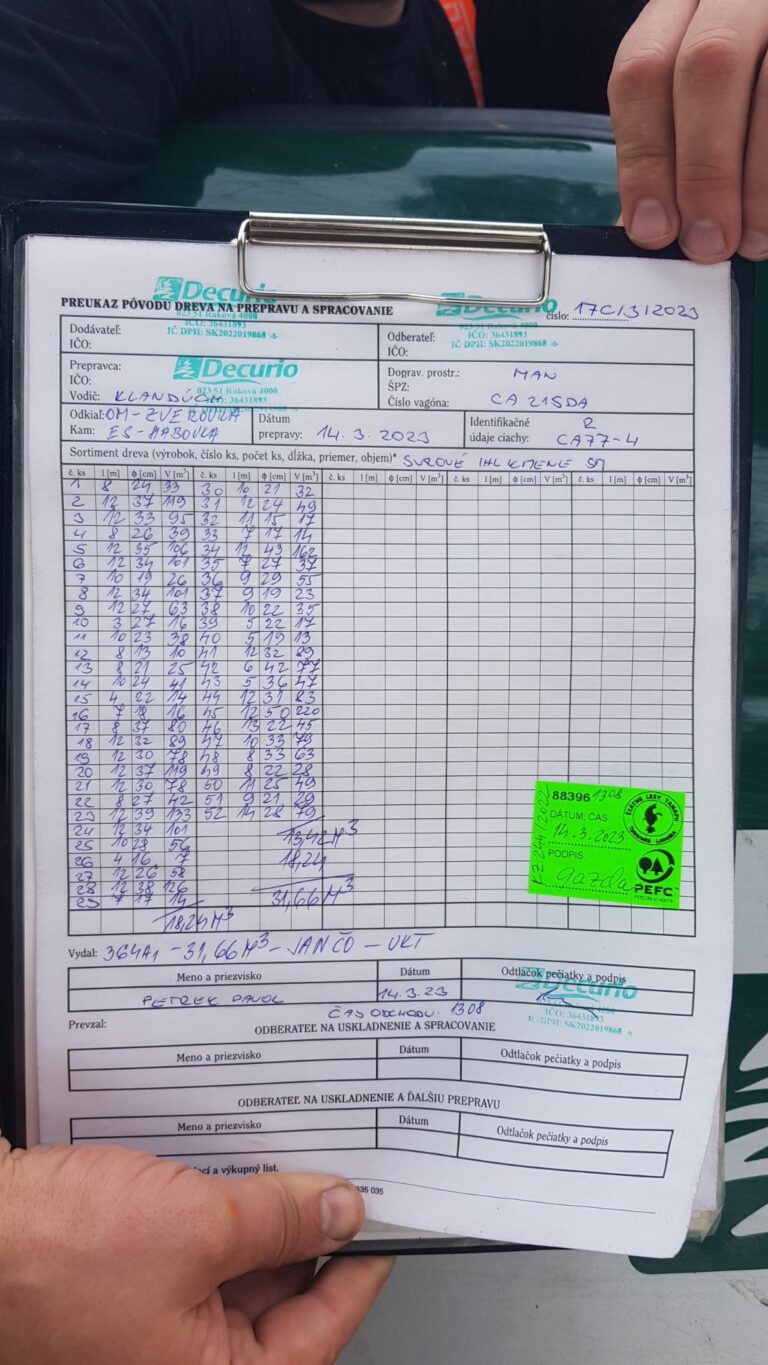 Decurio
Decurio
PREUKAZ PÔVODU DREVA NA PREPRAVU A SPRACOVANIE
číslo: 17C/3/2023
023 51 Raková 4000
IČO: 36431893
IČ DPH: SK2022019868 -5-
023 51 Raková 4000
IČO: 36431893
IČ DPH: SK2022019868 -5-
Dodávateľ:
IČO:
Odberateľ:
IČO:
Prepravca:
IČO:
Vodič:
Decurio
023 51 Raková 4000
Doprav. prostr.: MAN
ŠPZ:
Číslo vagóna: CA 215DA
Odkiaľ: OM-ZVEROVKA
Kam: ES-HABOVKA
Dátum
prepravy: 14. 3. 2023
Identifikačné 2
údaje ciachy: CA77-4
Sortiment dreva (výrobok, číslo ks, počet ks, dĺžka, priemer, objem)* SUROVÉ IHL KMENE SM
č. ks l [m] ϕ [cm] V [m³] č. ks l [m] ϕ [cm] V [m³] č. ks l [m] ϕ [cm] V [m³] č. ks l [m] ϕ [cm] V [m³] č. ks l [m] ϕ [cm] V [m³]
1 8 24 33 30 10 21 32
2 12 37 119 31 12 24 49
3 12 33 95 32 11 15 17
4 8 26 39 33 7 17 14
5 12 35 106 34 12 43 162
6 12 34 101 35 7 27 37
7 10 19 26 36 9 29 55
8 12 34 101 37 9 19 23
9 12 27 63 38 10 22 35
10 3 27 16 39 5 22 17
11 10 23 38 40 5 19 13
12 8 13 10 41 12 32 89
13 8 21 25 42 6 42 77
14 10 24 41 43 5 36 47
15 4 22 14 44 12 31 83
16 7 18 16 45 12 50 220
17 8 37 80 46 13 22 45
18 12 32 89 47 10 33 79
19 12 30 78 48 8 33 63
20 12 37 119 49 8 22 28
21 12 30 78 50 11 25 49
22 8 27 42 51 9 21 29
23 12 39 133 52 14 28 79
24 12 34 101 13,42M³
25 10 28 56 18,24
26 4 16 7
27 12 26 58
28 12 38 126 31,66M³
29 7 17 14
18,24M³
88396 1308
DÁTUM, ČAS:
14.3.2023
PODPIS:
gazda
KZ 244/2022
ŠTÁTNE LESY TANAPU
Tatranská Lomnica
PEFC
Vydal: 364A1 - 31,66M³ - JANČO - UKT
Meno a priezvisko Dátum Odtlačok pečiatky a podpis
PETREK PAVOL 14.3.23
Decurio
IČO: 36431893
IČ DPH: SK2022019868
ČAS ODCHODU: 1308
Prevzal:
ODBERATEĽ NA USKLADNENIE A SPRACOVANIE
Meno a priezvisko Dátum Odtlačok pečiatky a podpis
ODBERATEĽ NA USKLADNENIE A ĎALŠIU PREPRAVU
Meno a priezvisko Dátum Odtlačok pečiatky a podpis
ací a výkupný list.
635 035